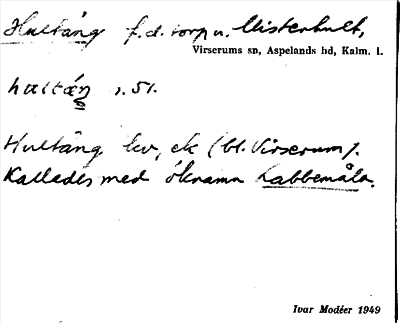 Hultäng f.d. torp u. Misterhult,
Virserums sn, Aspelands hd, Kalm. l.
s. 51.
Hultäng lev, ek (bl. Virserum).
Kallades med öknamn Labbemåla.
Ivar Modéer 1949